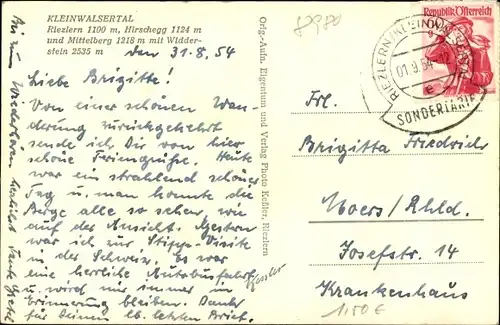 KLEINWALSERTAL
Riezlern 1100 m, Hirschegg 1124 m
und Mittelberg 1218 m mit Widder-
stein 2535 m
den 31.8.54
Liebe Brigitte!
Von einer schönen Wan-
derung zurückgekehrt
sende ich Dir von hier
schöne Feriengrüße. Heute
war ein strahlend schöner
Tag u. man konnte die
Berge alle so sehen, wie
auf der Ansicht. Gestern
war ich zur Stipp-Visite
in der Schweiz. Es war
eine herrliche Autobusfahrt
u. wird mir immer in
Erinnerung bleiben. Dank
für Deinen lb. letzten Brief.
Auf Wiedersehen herzlichst Tante Gretel
Orig.-Aufn. Eigentum und Verlag Photo Keßler, Riezlern
Kessler
8980
Republik Österreich
RIEZLERN (KLEINWALSERTAL)
01.9.54
e
SONDERTARIF
Frl.
Brigitta Friedrich
Moers/Rhld.
Josefstr. 14
Krankenhaus
1.50 €